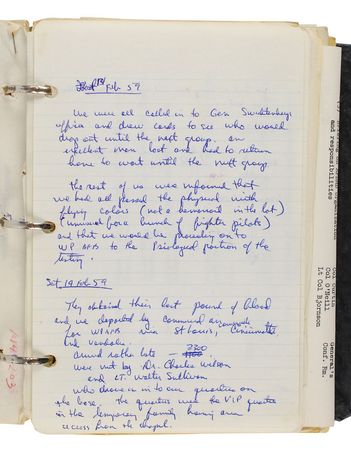 Feb 59
We were all called in to Gen
office and drew cards to see who would
drop out until the next group. an
excellent man lost and had to return
home to wait until the next group
the rest of us were informed that
we had all passed the physical with
flying colors (not a in the lot)
(unusual for a bunch of fighter pilots)
and that we would be proceeding on to
WP AFB to the portion of the
testing.
Sat 14 Feb 59
They obtained their last pound of blood
and we departed by commercial
for WPAFB via St Louis, Cincinnatti
arrived rather late - 2200
were met by: Dr. Charles Wilson
and LT. Walter Sullivan
who drove us to our quarters on
the base. The quarters was the VIP quarters
in the temporary family housing area
across from the
and responsibilities
Col O'Neill
Lt Col Bjornson
General's
Conf. Rm.